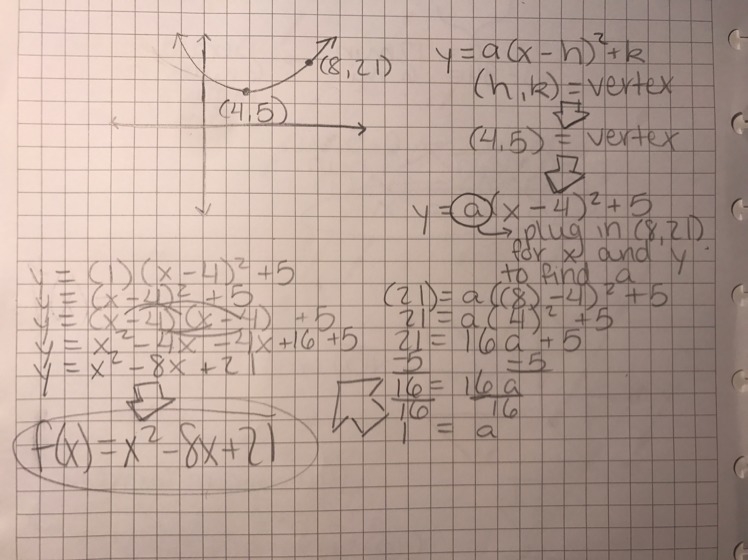 (8,21)
(4,5)
y = a(x-h)²+k
(h,k) = vertex
(4,5) = vertex
y = a(x-4)²+5
plug in (8,21)
for x and y
to find a
(21) = a((8)-4)²+5
21 = a(4)²+5
21 = 16a+5
-5 -5
16 = 16a
16 16
1 = a
y = (1)(x-4)²+5
y = (x-4)²+5
y = (x-4)(x-4) +5
y = x²-4x-4x+16+5
y = x²-8x+21
f(x)=x²-8x+21